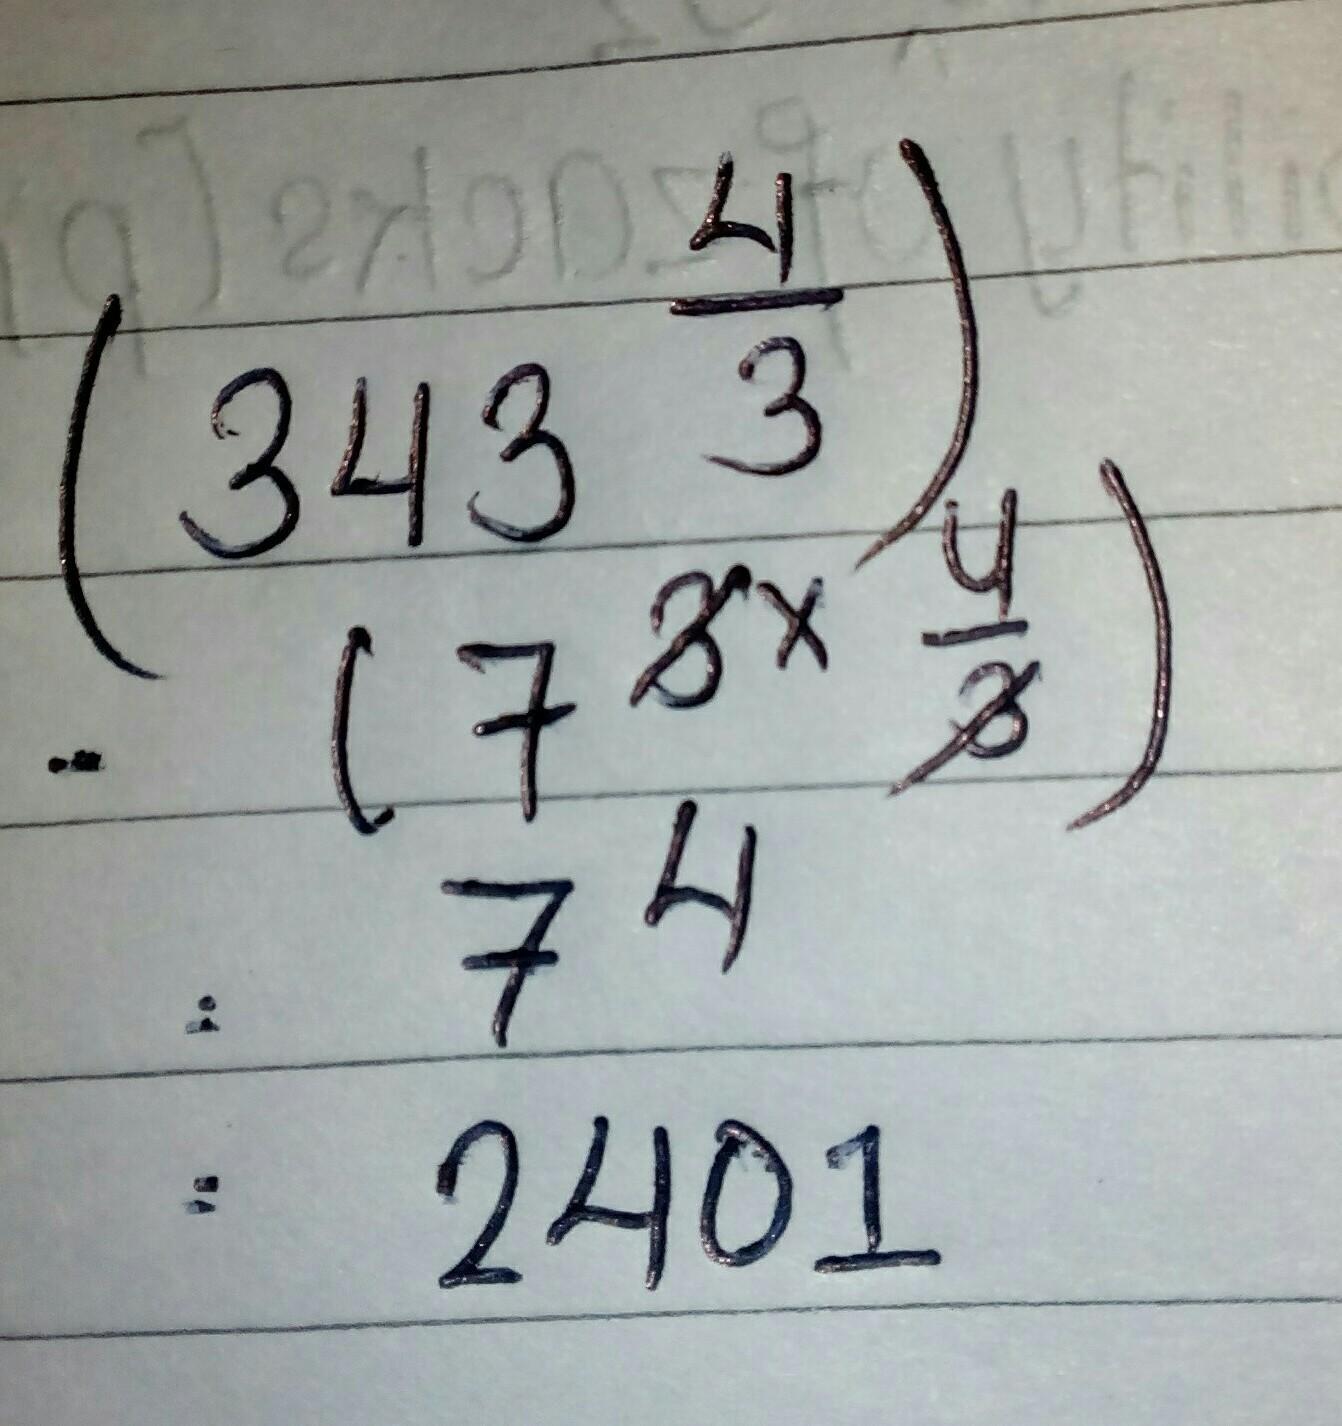 (343 4/3)
(7 3 x 4/3)
: 7 4
= 2401